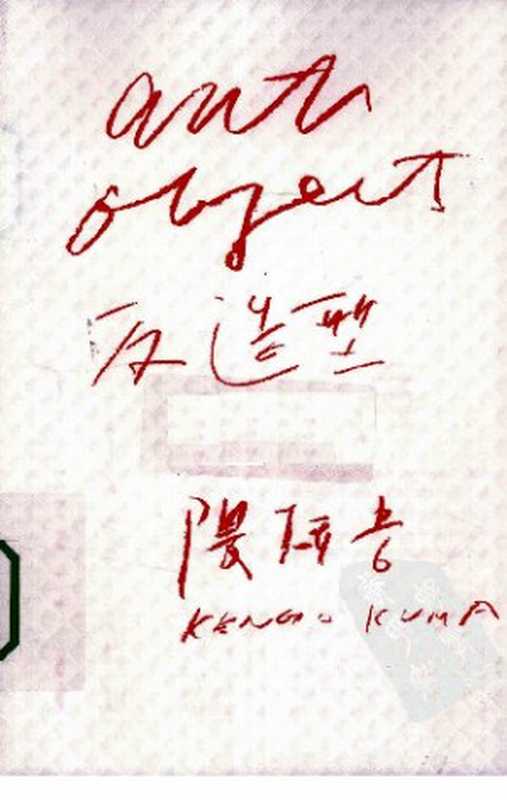 anti
object
反造型
隈研吾
KENGO KUMA